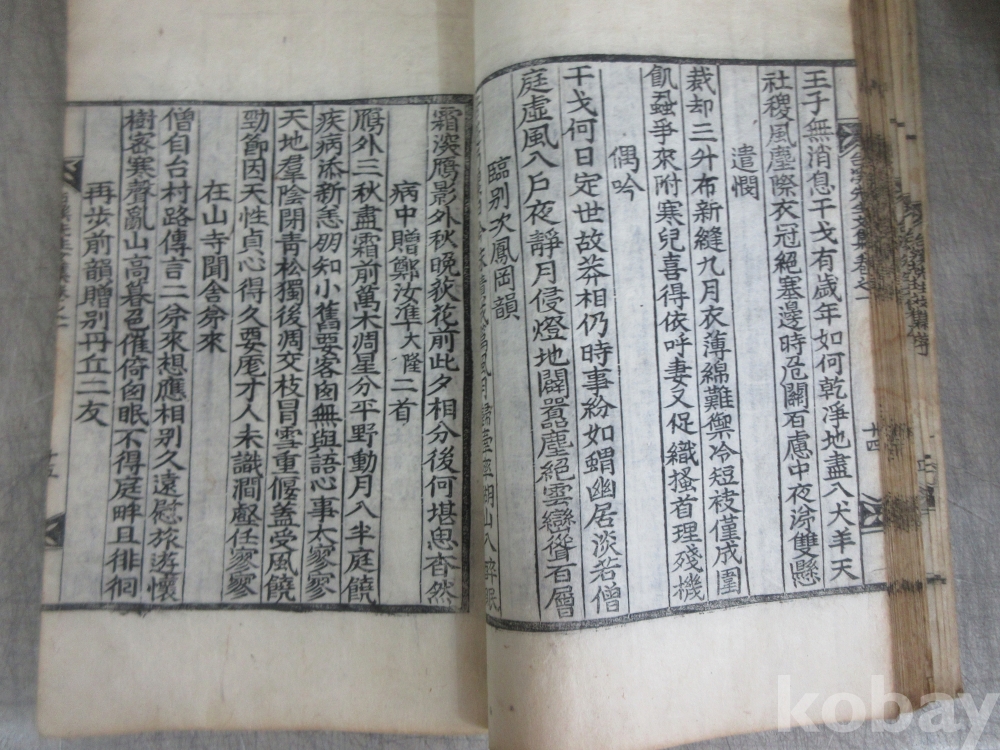 王子無消息干戈有歲年如何乾淨地盡入犬羊天
社稷風塵際衣冠絕塞邊時危關石慮中夜涕雙懸
遣憫
裁却三升布新縫九月衣薄綿難禦冷短枝僅成圍
飢蝨爭來附寒兒喜得依呼妻又促織搔首理殘機
偶吟
干戈何日定世故莽相仍時事紛如蝟幽居淡若僧
庭虛風入戶夜靜月侵燈地闢囂塵絕雲巒聳百層
臨別次鳳岡韻
霜淡鴈影外秋晚荻花前此夕相分後何堪思杳然
病中贈鄭汝準大隆二首
鴈外三秋盡霜前萬木凋星分平野動月入半庭饒
疾病添新恙朋知小舊要客囱無與語心事太寥寥
天地羣陰閉靑松獨後凋交枝冐雪重偃盖受風饒
勁節因天性貞心得久要庬才人未識澗壑任寥寥
在山寺聞舍弟來
僧自台村路傳言二弟來想應相別久遠慰旅遊懷
樹密寒聲亂山高暮色催倚囱眠不得庭畔且徘徊
再步前韻贈別丹丘二友
十四
kobay